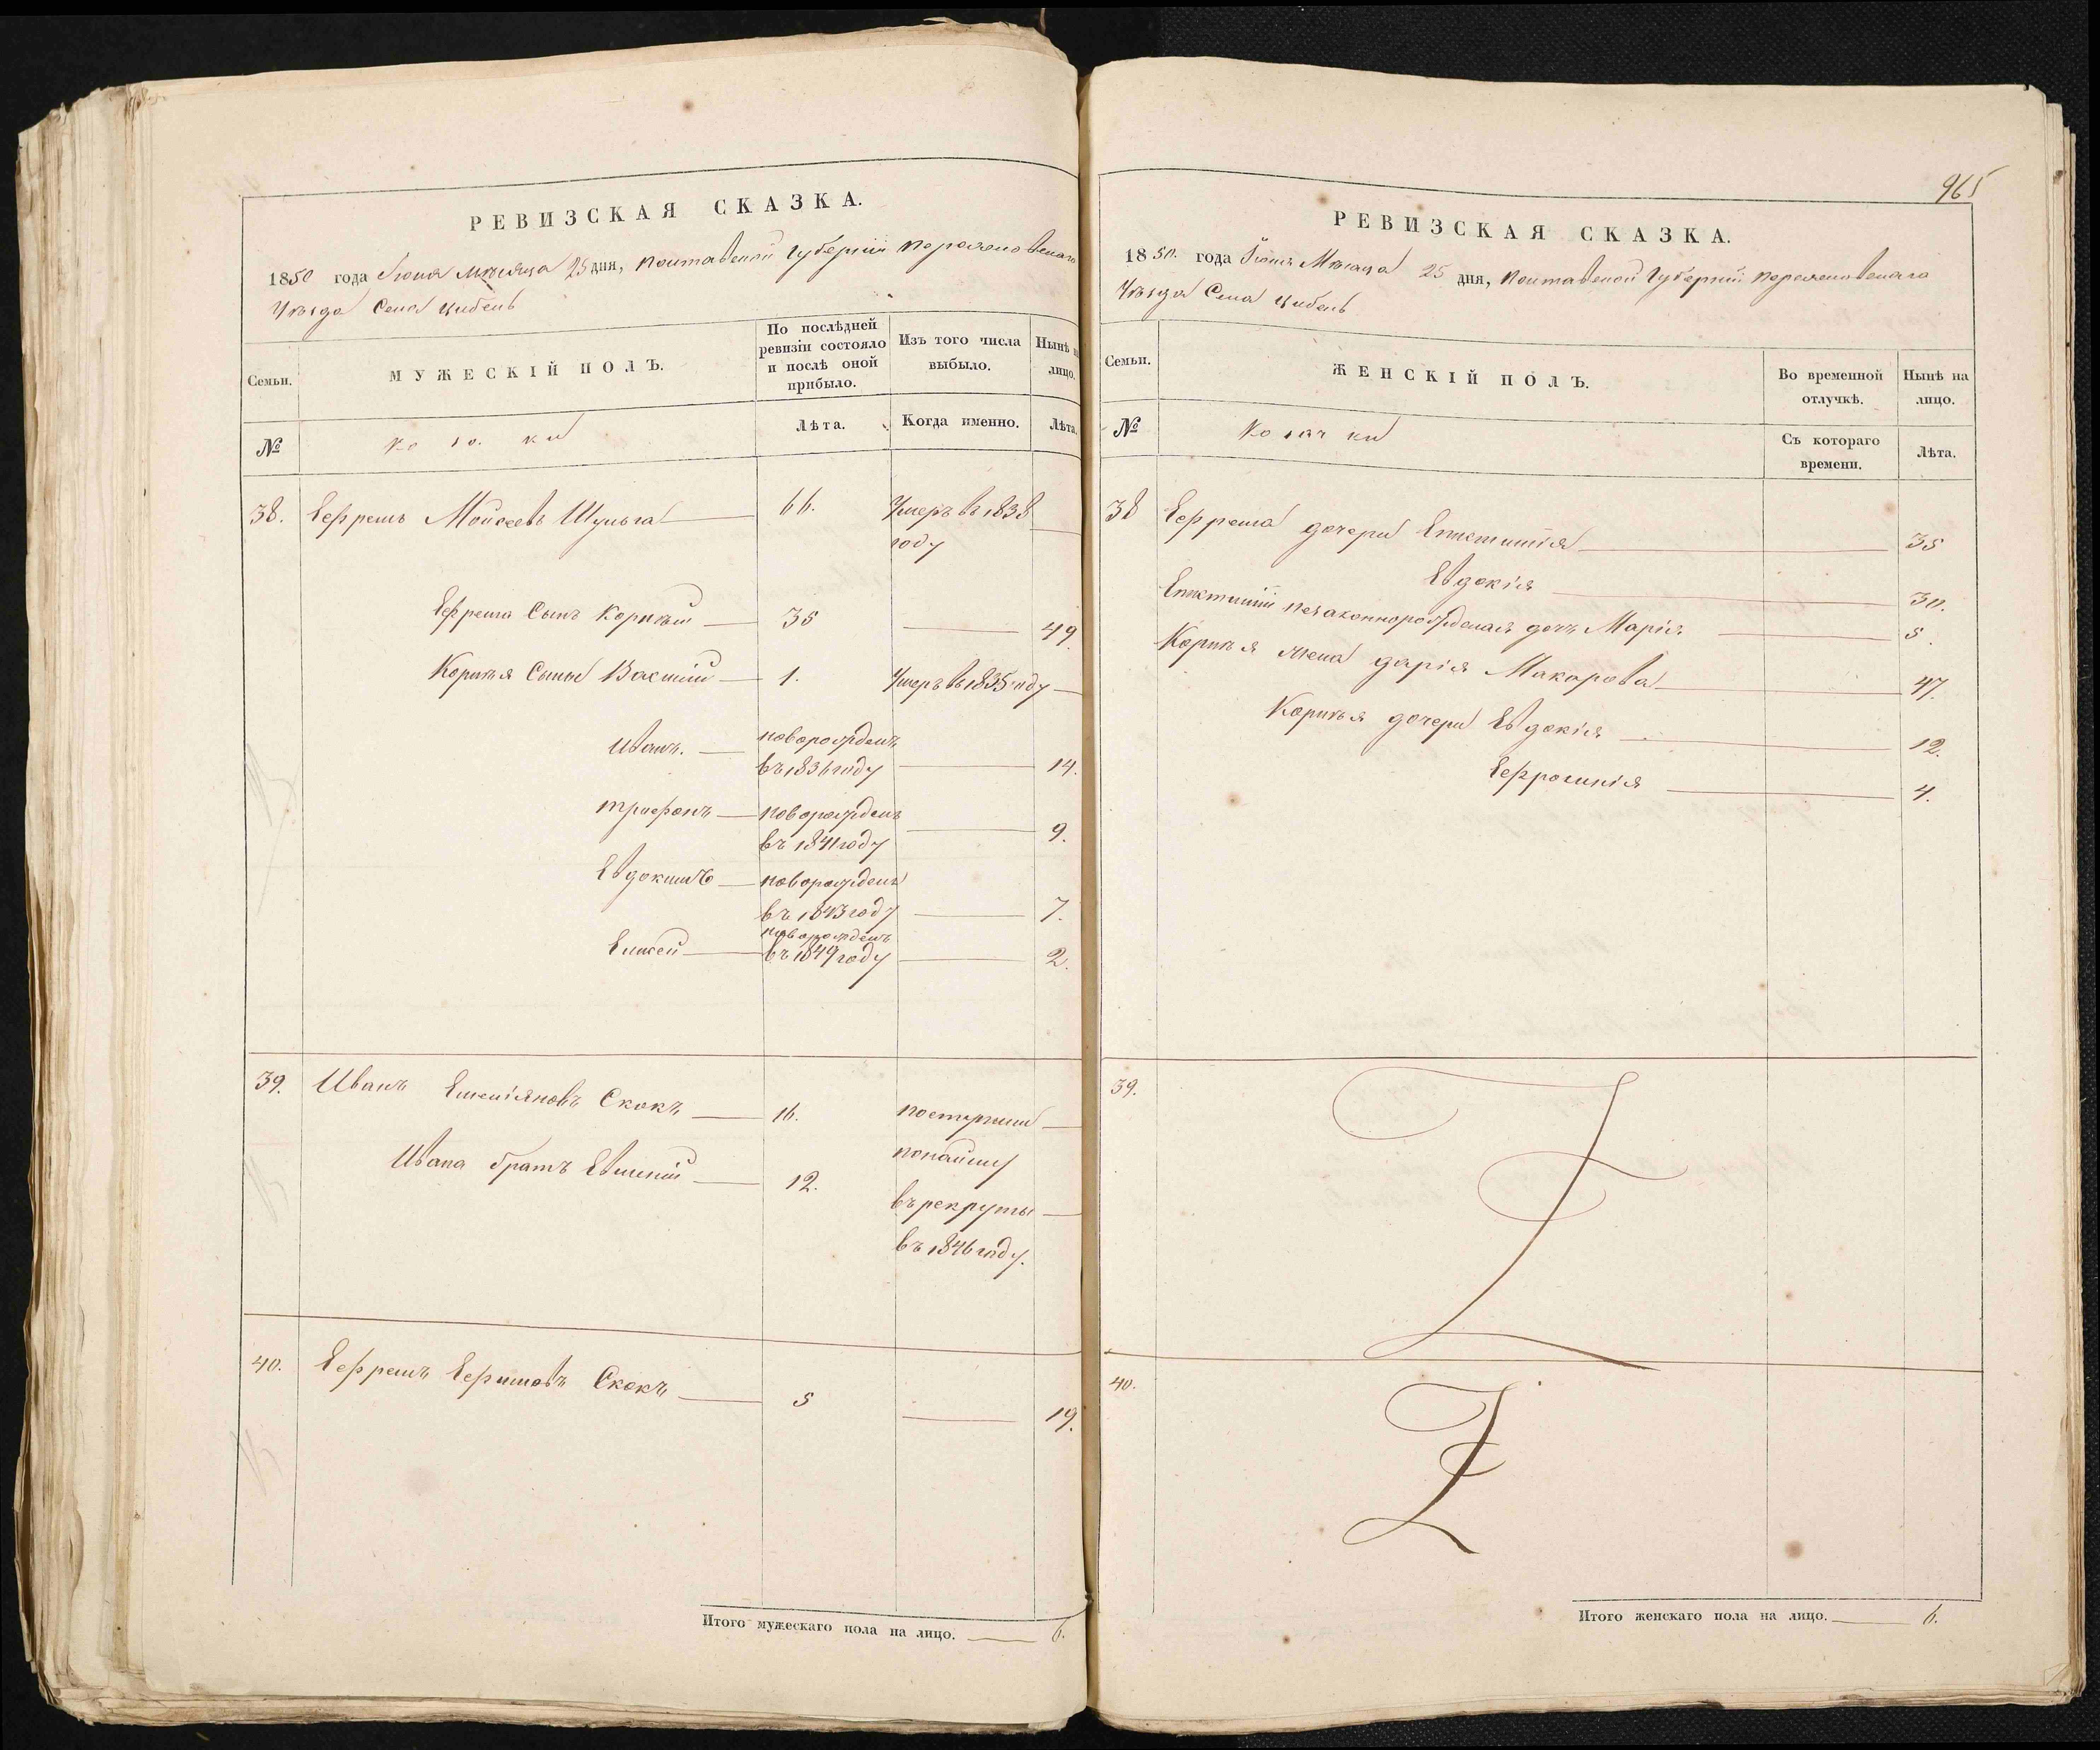 РЕВИЗСКАЯ СКАЗКА.
1850 года Іюня Мѣсяца 25 дня, Полтавской Губерніи Переяславскаго
Уѣзда Села Цибель
Семьи. МУЖЕСКІЙ ПОЛЪ. По послѣдней ревизіи состояло и послѣ оной прибыло. Изъ того числа выбыло. Нынѣ на лицо.
№ Козаки Лѣта. Когда именно. Лѣта.
38. Ефремъ Моисеевъ Шульга 66. Умеръ въ 1838
году
Ефрема Сынъ Корнѣй 35 49
Корнѣя Сыны Василій 1. Умеръ въ 1835 году
Иванъ. новорожденъ
въ 1836 году 14.
Трифонъ новорожденъ
въ 1841 году 9.
Евдокимъ новорожденъ
въ 1843 году 7.
Елисей новорожденъ
въ 1849 году 2.
39. Иванъ Емеліяновъ Скокъ 16. поступили
Ивана братъ Евменій 12. понайму
въ рекруты
въ 1846 году.
40. Ефремъ Ефимовъ Скокъ 5 19.
Итого мужескаго пола на лицо. 6.
965
РЕВИЗСКАЯ СКАЗКА.
1850. года Іюня Мѣсяца 25 дня, Полтавской Губерніи Переяславскаго
Уѣзда Села Цибель
Семьи. ЖЕНСКІЙ ПОЛЪ. Во временной отлучкѣ. Нынѣ на лицо.
№ Козачки Съ котораго времени. Лѣта.
38 Ефрема дочери Епистимія 35
Евдокія 30.
Епистиміи незаконнорожденая дочь Марія 5.
Корнѣя жена Дарія Макарова 47.
Корнѣя дочери Евдокія 12.
Ефросинія 4.
39.
40.
Итого женскаго пола на лицо. 6.